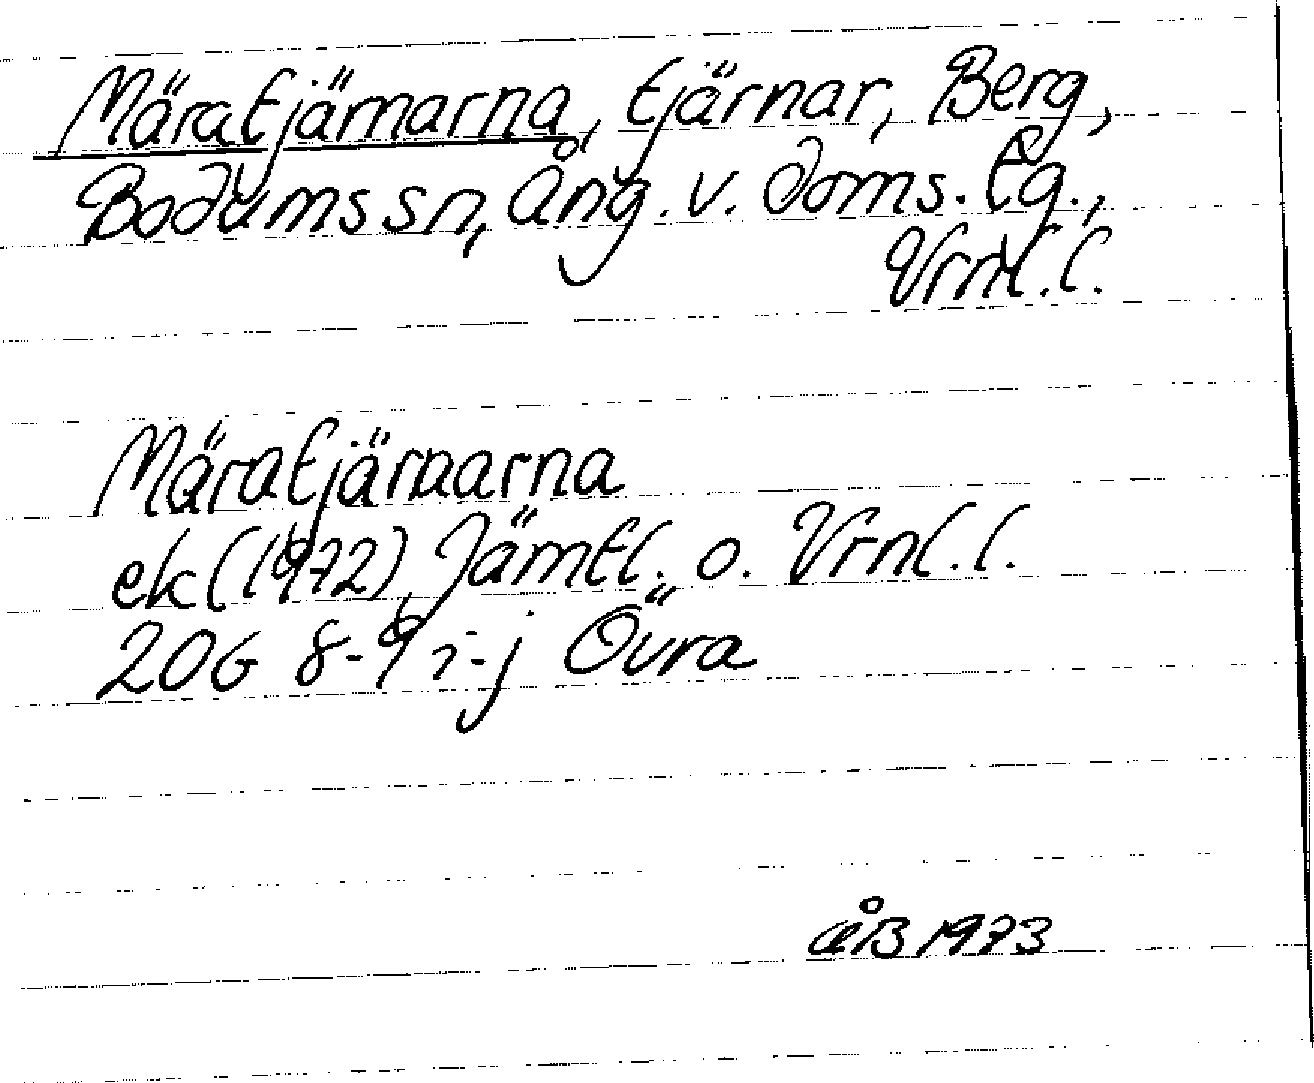 Märatjärnarna, tjärnar, Berg,
Bodums sn, Ång. v. doms. tg.,
Vrnl. l.
Märatjärnarna
ek (1972), Jämtl. o. Vrnl. l.
20G 8-9 i-j Övra
ÅB 1973